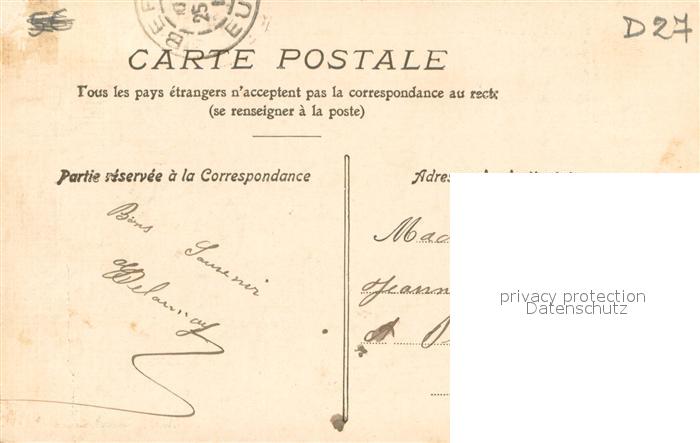 56
D27
CARTE POSTALE
Tous les pays étrangers n'acceptent pas la correspondance au recto
(se renseigner à la poste)
Partie réservée à la Correspondance
Bons Souvenir
Delaunay
Adres
Mad
Jeann
privacy protection
Datenschutz